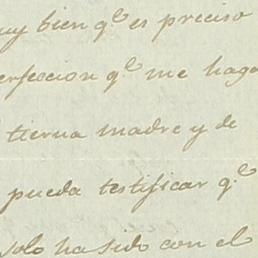 uy bien q.e es preciso
erfeccion q.e me haga
tierna madre y de
pueda testificar q.e
solo ha sido con el